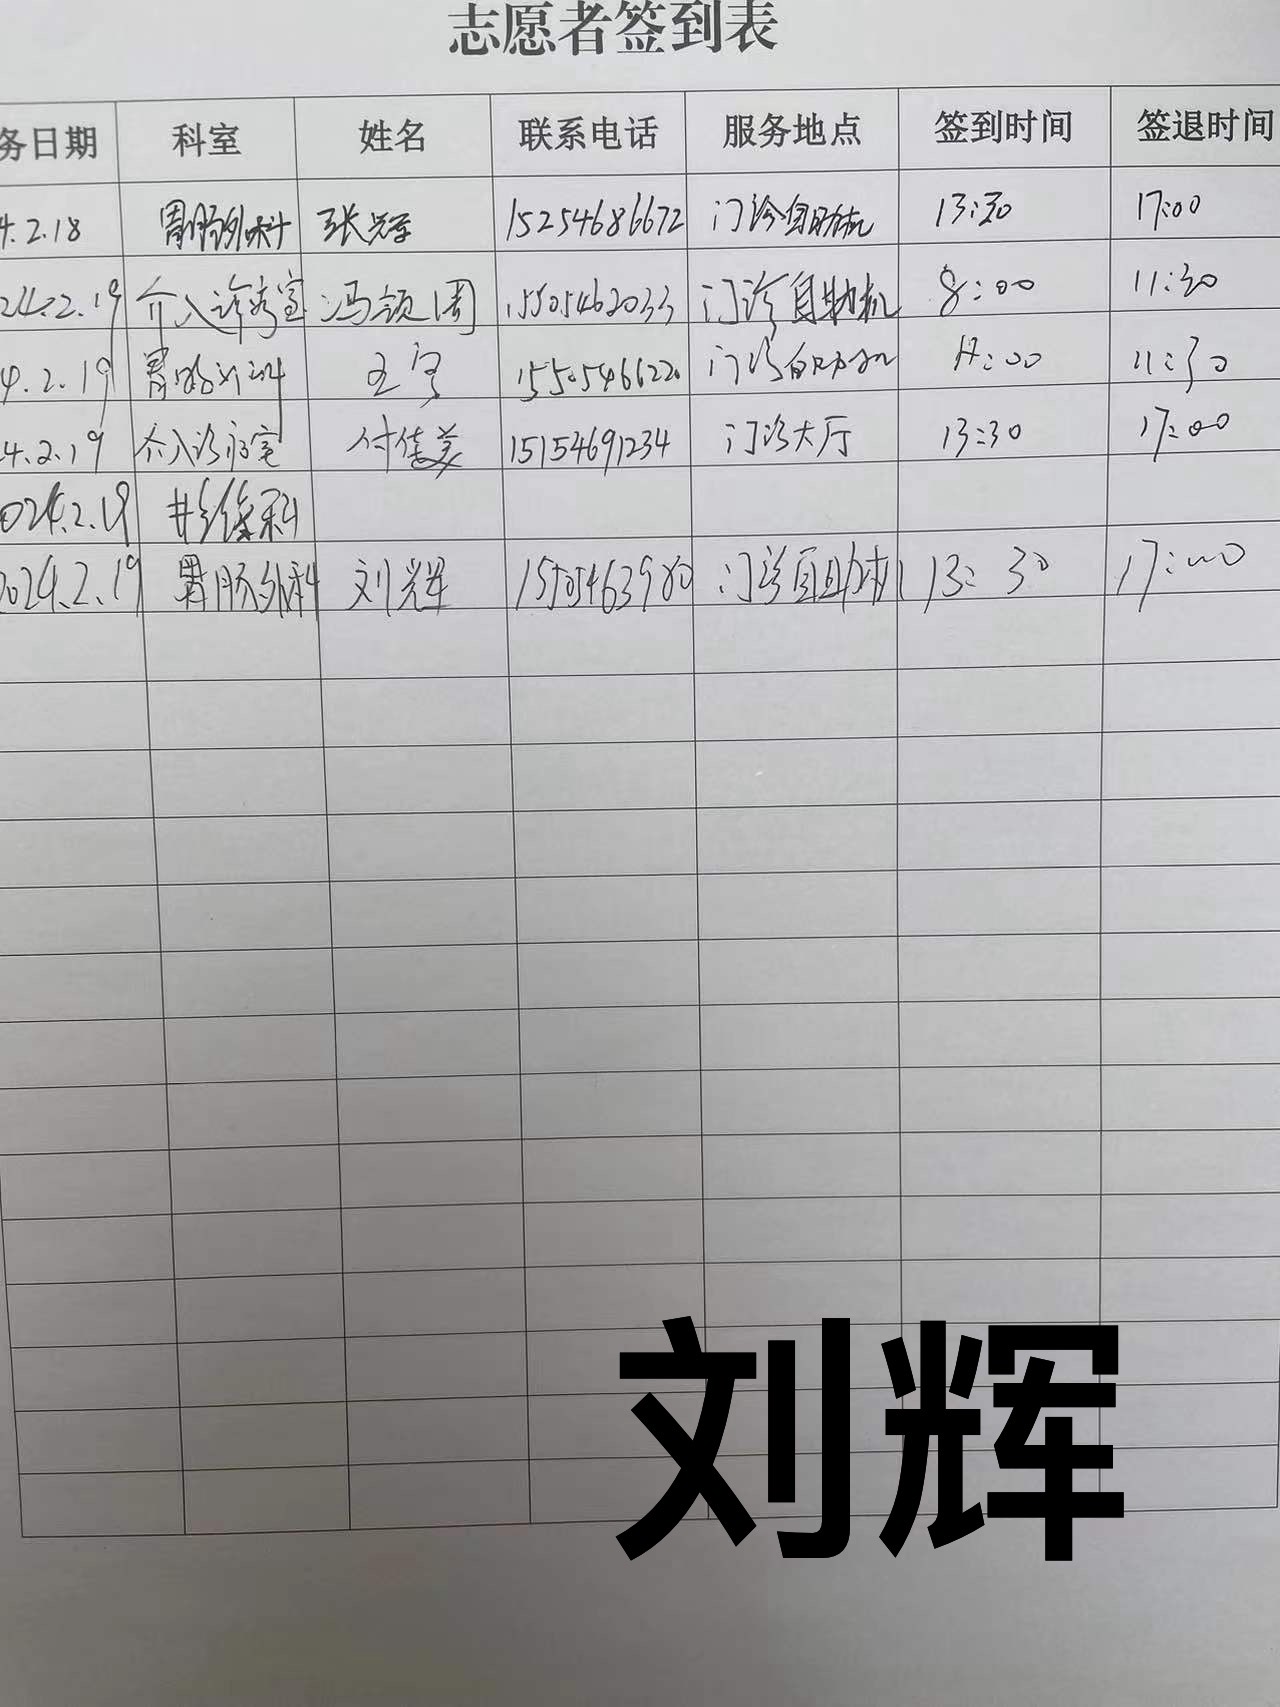 志愿者签到表
务日期 科室 姓名 联系电话 服务地点 签到时间 签退时间
4.2.18 胃肠外科 张辉 15254686672 门诊自助机 13:30 17:00
24.2.19 介入诊疗室 冯领周 15505462033 门诊自助机 8:00 11:30
4.2.19 胃肠外科 王宁 15505466220 门诊自助机 :00 11:30
4.2.19 介入诊疗室 付佳美 15154691234 门诊大厅 13:30 17:00
2024.2.19 科
2024.2.19 胃肠外科 刘辉 门诊自助机 13:30 17:00
刘辉